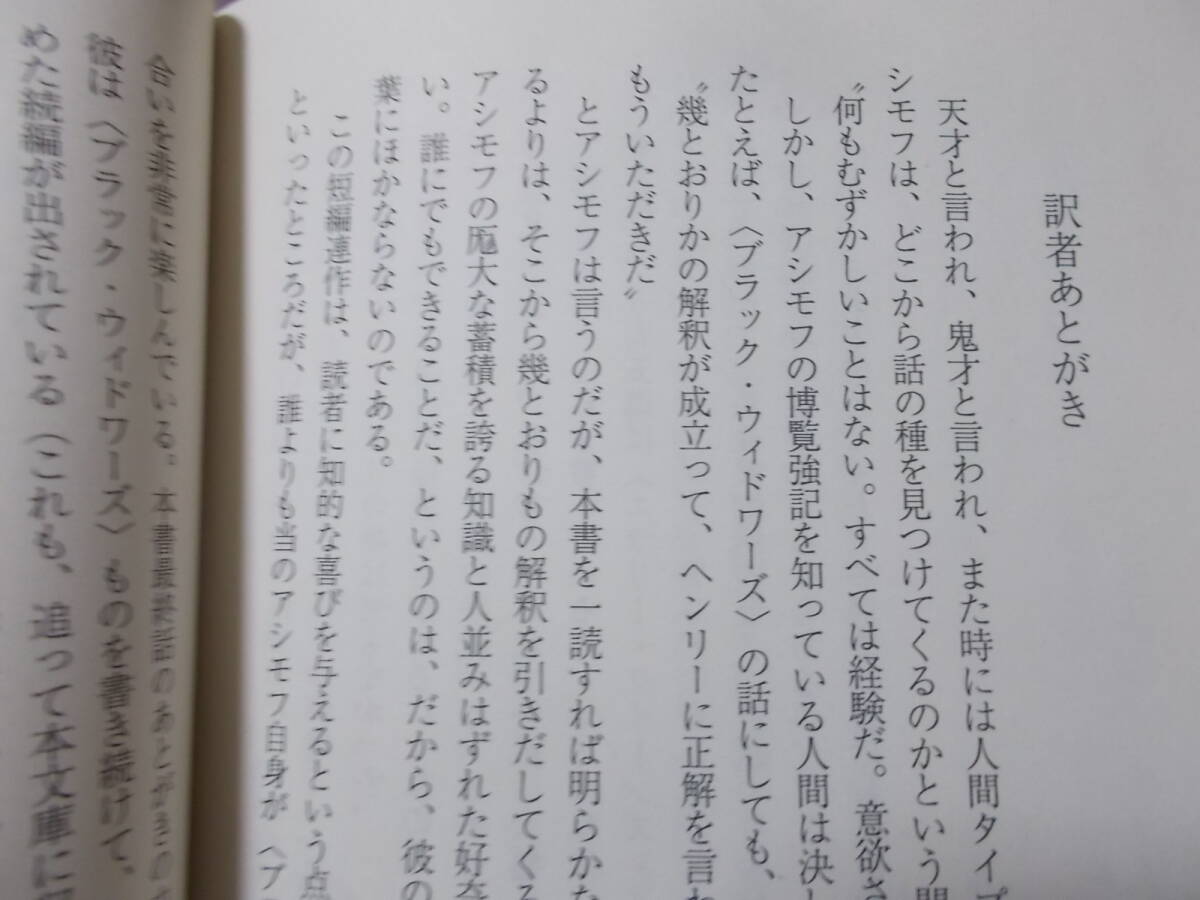 訳者あとがき
天才と言われ、鬼才と言われ、また時には人間タイプ
シモフは、どこから話の種を見つけてくるのかという
〝何もむずかしいことはない。すべては経験だ。意欲さ
しかし、アシモフの博覧強記を知っている人間は決し
たとえば、〈ブラック・ウィドワーズ〉の話にしても、
〝幾とおりかの解釈が成立って、ヘンリーに正解を言わ
もういただきだ〟
とアシモフは言うのだが、本書を一読すれば明らかな
るよりは、そこから幾とおりもの解釈を引きだしてくる
アシモフの厖大な蓄積を誇る知識と人並みはずれた好奇
い。誰にでもできることだ、というのは、だから、彼の
葉にほかならないのである。
この短編連作は、読者に知的な喜びを与えるという点
といったところだが、誰よりも当のアシモフ自身が〈ブ
合いを非常に楽しんでいる。本書最終話のあとがきの
彼は〈ブラック・ウィドワーズ〉ものを書き続けて、
めた続編が出されている（これも、追って本文庫に